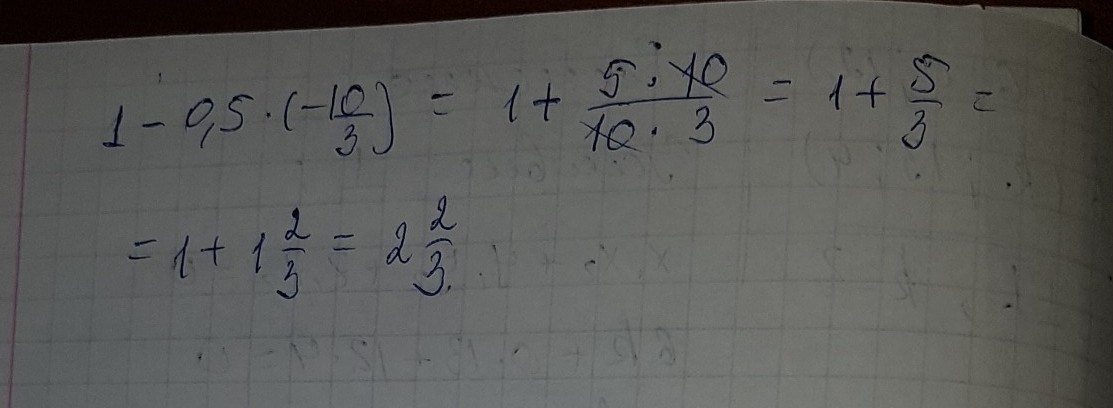 1 - 0,5 · (-10/3) = 1 + 5 · 10/10 · 3 = 1 + 5/3 =
= 1 + 1 2/3 = 2 2/3.